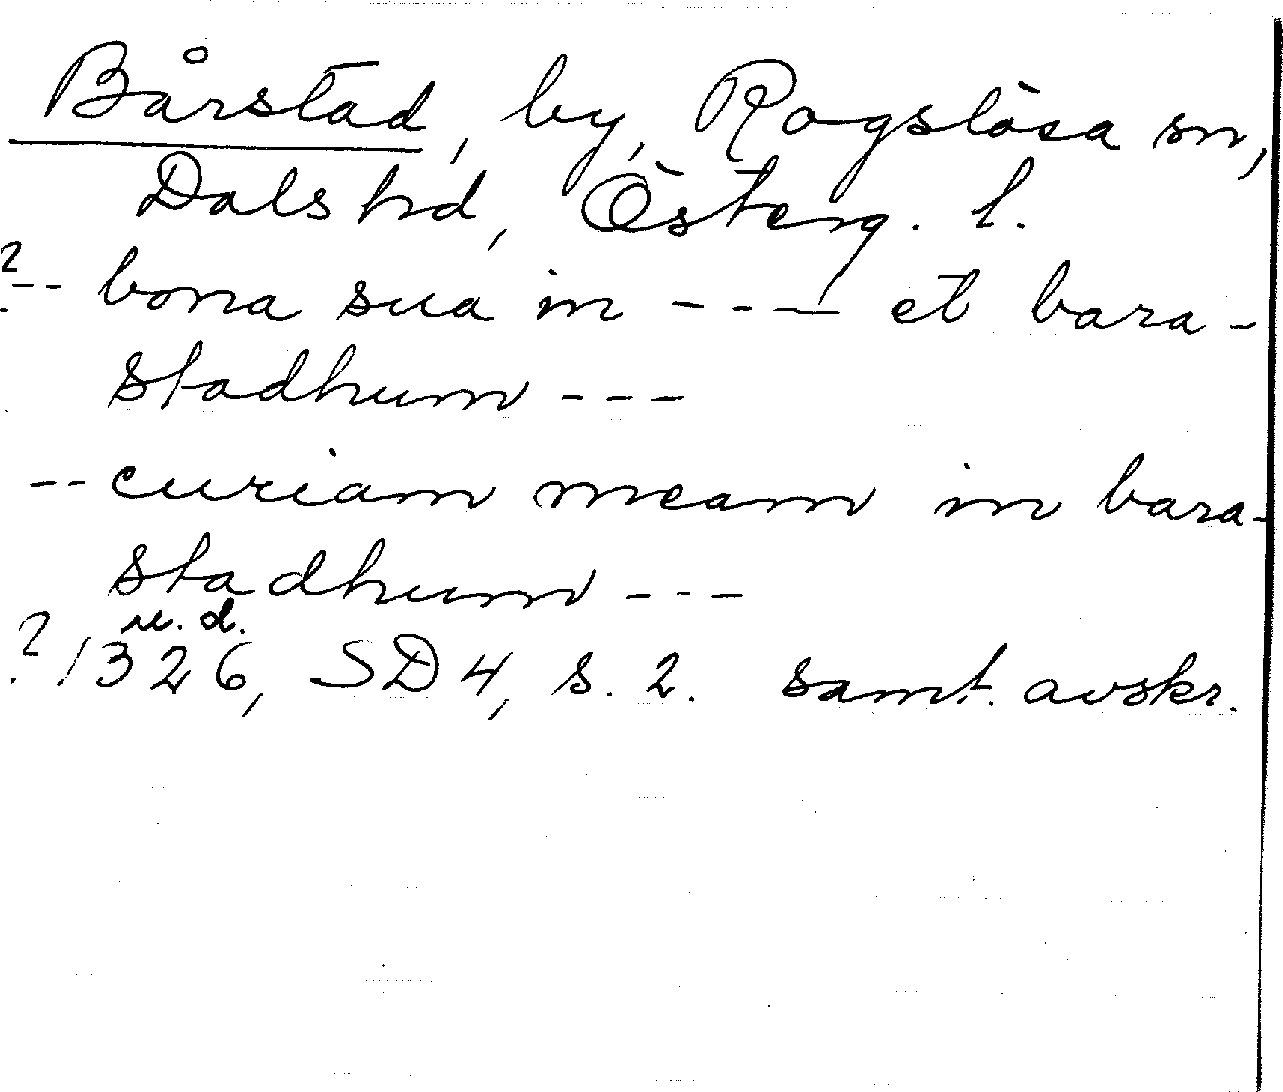 Bårstad, by, Rogslösa sn,
Dals hd, Österg. l.
? -- bona sua in ---- et bara-
stadhum ---
-- curiam meam in bara-
stadhum ---
u. d.
? 1326, SD4, s. 2. samt. avskr.